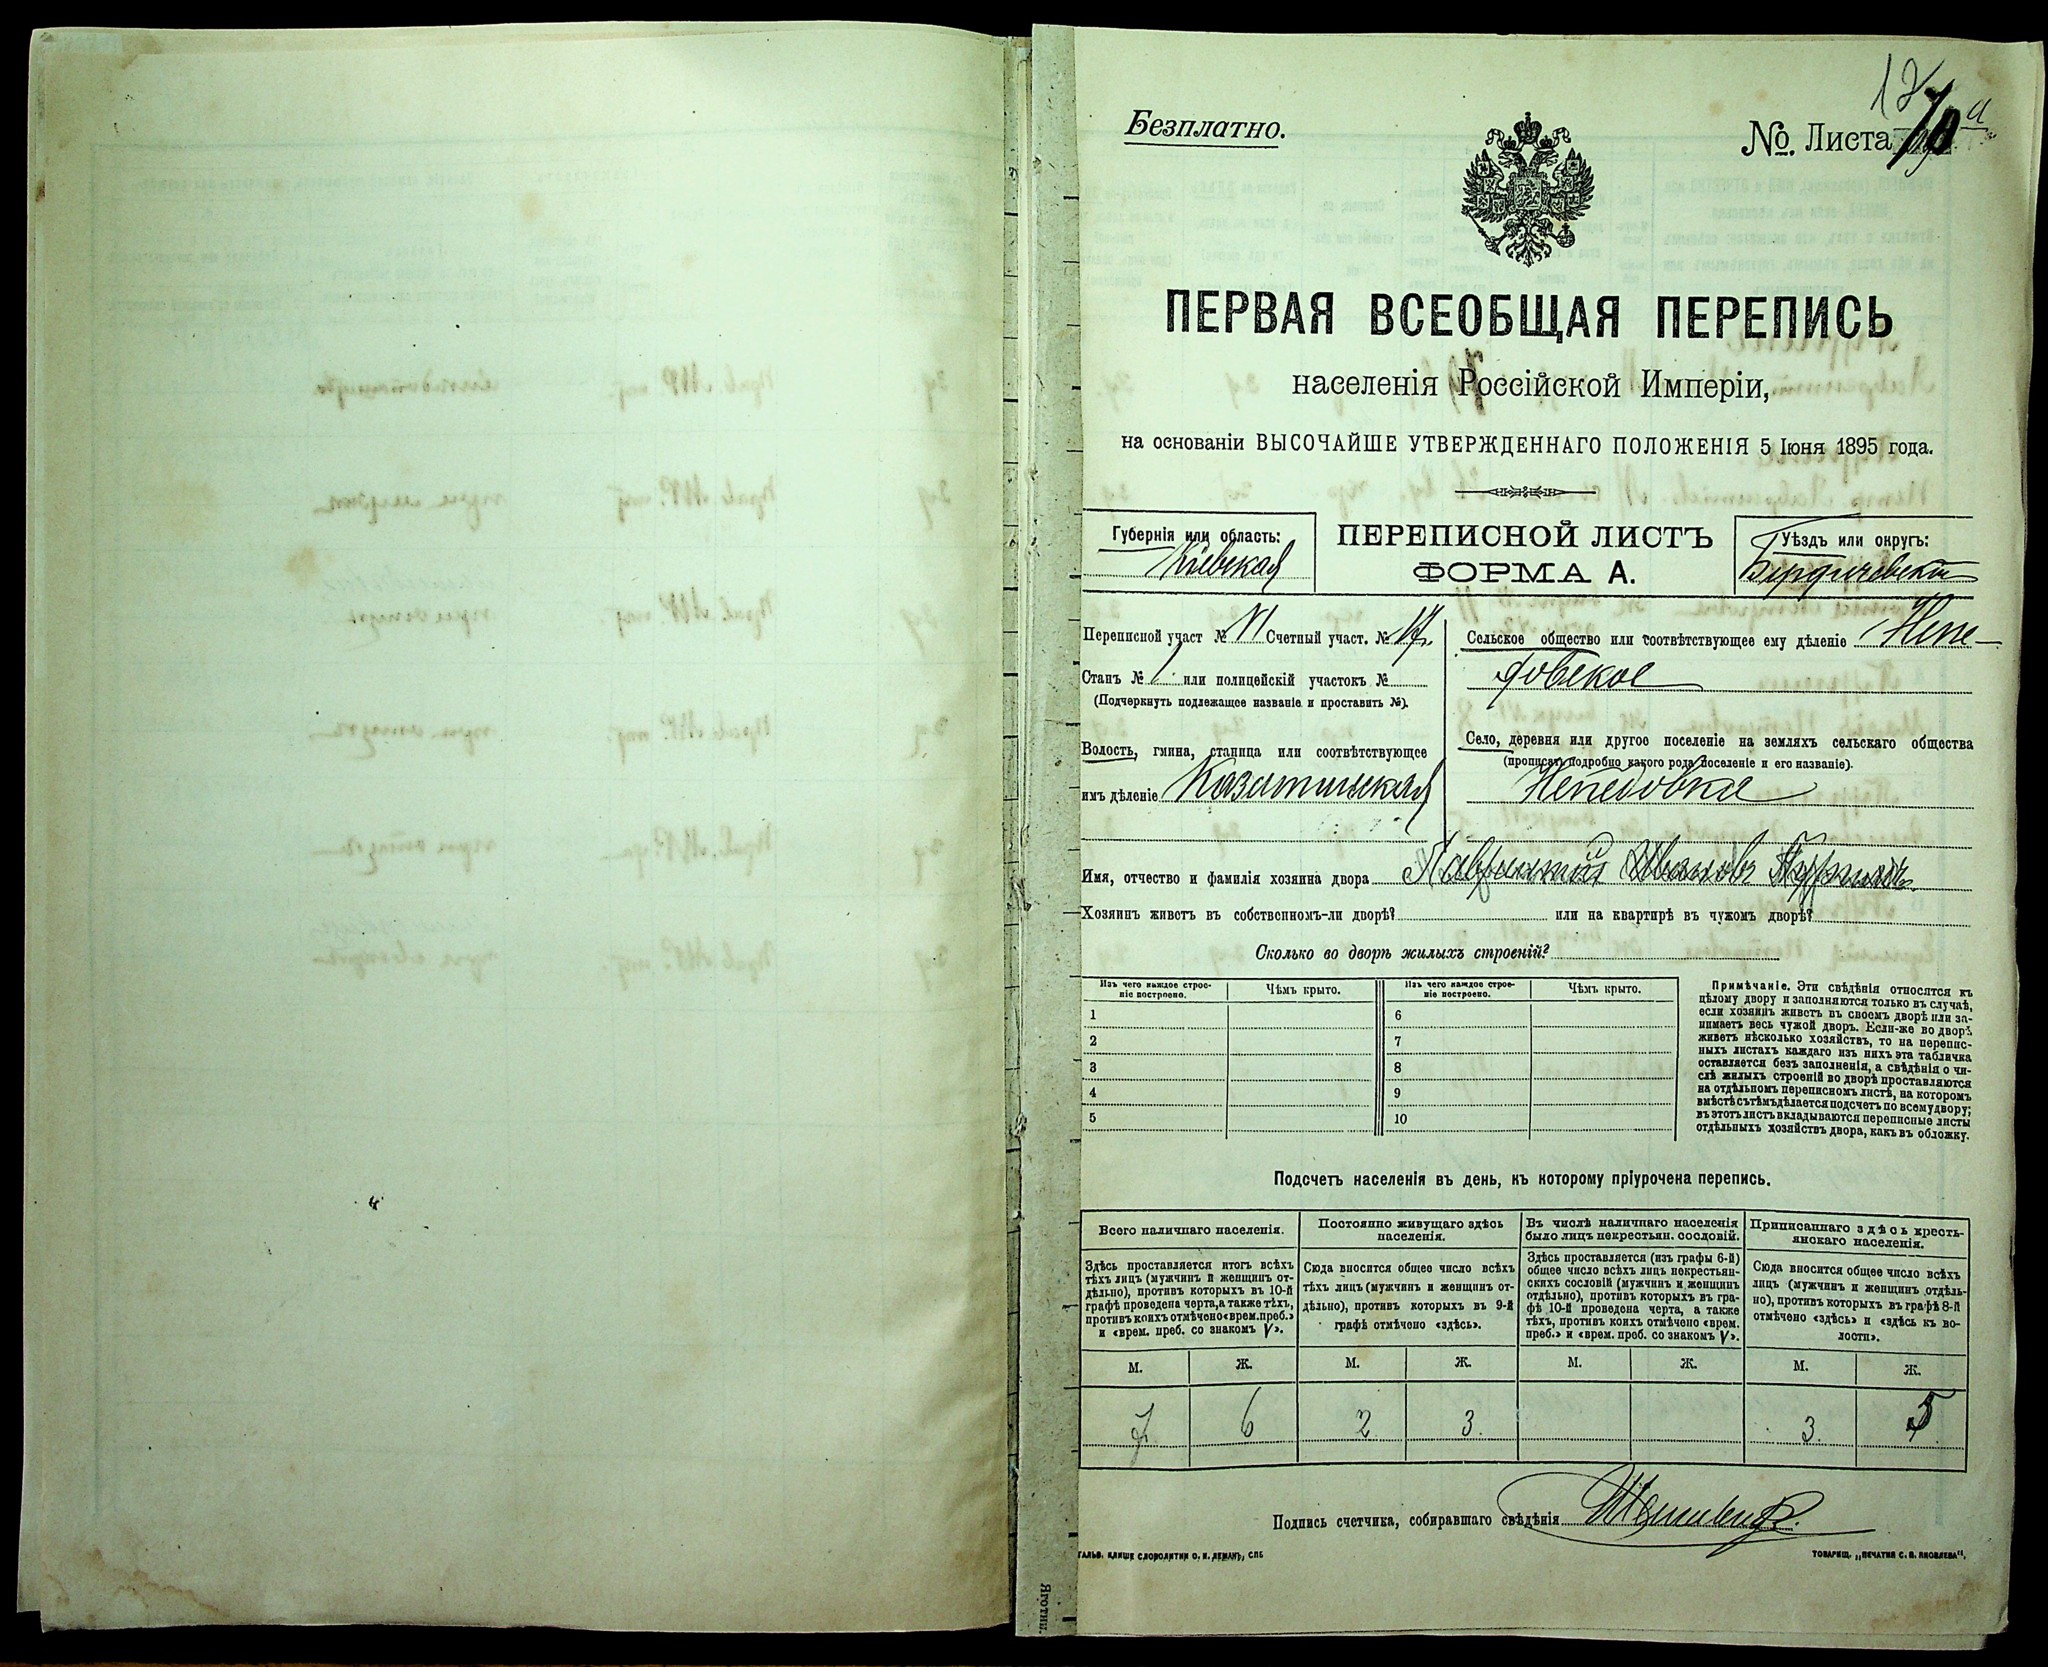 Безплатно.
№. Листа
ПЕРВАЯ ВСЕОБЩАЯ ПЕРЕПИСЬ
населенія Россійской Имперіи,
на основаніи ВЫСОЧАЙШЕ УТВЕРЖДЕННАГО ПОЛОЖЕНІЯ 5 Іюня 1895 года.
Губернія или область:
Кіевская
ПЕРЕПИСНОЙ ЛИСТЪ
ФОРМА А.
Уѣздъ или округъ:
Бердичевскій
Переписной участ № VI Счетный участ. № 17
Станъ № или полицейскій участокъ №
(Подчеркнуть подлежащее названіе и проставить №).
Волость, гмина, станица или соотвѣтствующее
имъ дѣленіе Казатинская
Сельское общество или соотвѣтствующее ему дѣленіе Непе-
довское
Село, деревня или другое поселеніе на земляхъ сельскаго общества
(прописать подробно какого рода поселеніе и его названіе).
Непедовка
Имя, отчество и фамилія хозяина двора Лаврентій Ивановъ
Хозяинъ живетъ въ собственномъ-ли дворѣ? или на квартирѣ въ чужомъ дворѣ?
Сколько во дворѣ жилыхъ строеній?
Изъ чего каждое строе-
ніе построено.
Чѣмъ крыто.
Изъ чего каждое строе-
ніе построено.
Чѣмъ крыто.
1 6
2 7
3 8
4 9
5 10
Примѣчаніе. Эти свѣдѣнія относятся къ
цѣлому двору и заполняются только въ случаѣ,
если хозяинъ живетъ въ своемъ дворѣ или за-
нимаетъ весь чужой дворъ. Если-же во дворѣ
живетъ нѣсколько хозяйствъ, то на перепис-
ныхъ листахъ каждаго изъ нихъ эта табличка
оставляется безъ заполненія, а свѣдѣнія о чи-
слѣ жилыхъ строеній во дворѣ проставляются
на отдѣльномъ переписномъ листѣ, на которомъ
вмѣстѣ съ тѣмъ дѣлается подсчетъ по всему двору;
въ этотъ листъ вкладываются переписные листы
отдѣльныхъ хозяйствъ двора, какъ въ обложку.
Подсчетъ населенія въ день, къ которому пріурочена перепись.
Всего наличнаго населенія.
Здѣсь проставляется итогъ всѣхъ
тѣхъ лицъ (мужчинъ и женщинъ от-
дѣльно), противъ которыхъ въ 10-й
графѣ проведена черта, а также тѣхъ,
противъ коихъ отмѣчено «врем. преб.»
и «врем. преб. со знакомъ V».
Постоянно живущаго здѣсь
населенія.
Сюда вносится общее число всѣхъ
тѣхъ лицъ (мужчинъ и женщинъ от-
дѣльно), противъ которыхъ въ 9-й
графѣ отмѣчено «здѣсь».
Въ числѣ наличнаго населенія
было лицъ некрестьян. сословій.
Здѣсь проставляется (изъ графы 6-й)
общее число всѣхъ лицъ некрестьян-
скихъ сословій (мужчинъ и женщинъ
отдѣльно), противъ которыхъ въ гра-
фѣ 10-й проведена черта, а также
тѣхъ, противъ коихъ отмѣчено «врем.
преб.» и «врем. преб. со знакомъ V».
Приписаннаго здѣсь кресть-
янскаго населенія.
Сюда вносится общее число всѣхъ
лицъ (мужчинъ и женщинъ отдѣль-
но), противъ которыхъ въ графѣ 8-й
отмѣчено «здѣсь» и «здѣсь къ во-
лости».
М. Ж. М. Ж. М. Ж. М. Ж.
6 2 3. 3. 5
Подпись счетчика, собиравшаго свѣдѣнія
ГАЛЬВ. КЛИШЕ СЛОВОЛИТНИ О. И. ЛЕМАНЪ, СПБ
ТОВАРИЩ. „ПЕЧАТНЯ С. П. ЯКОВЛЕВА“.